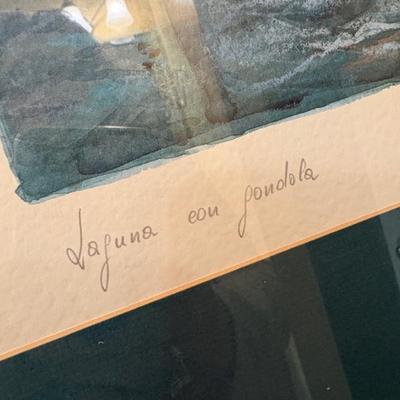 Laguna con gondola